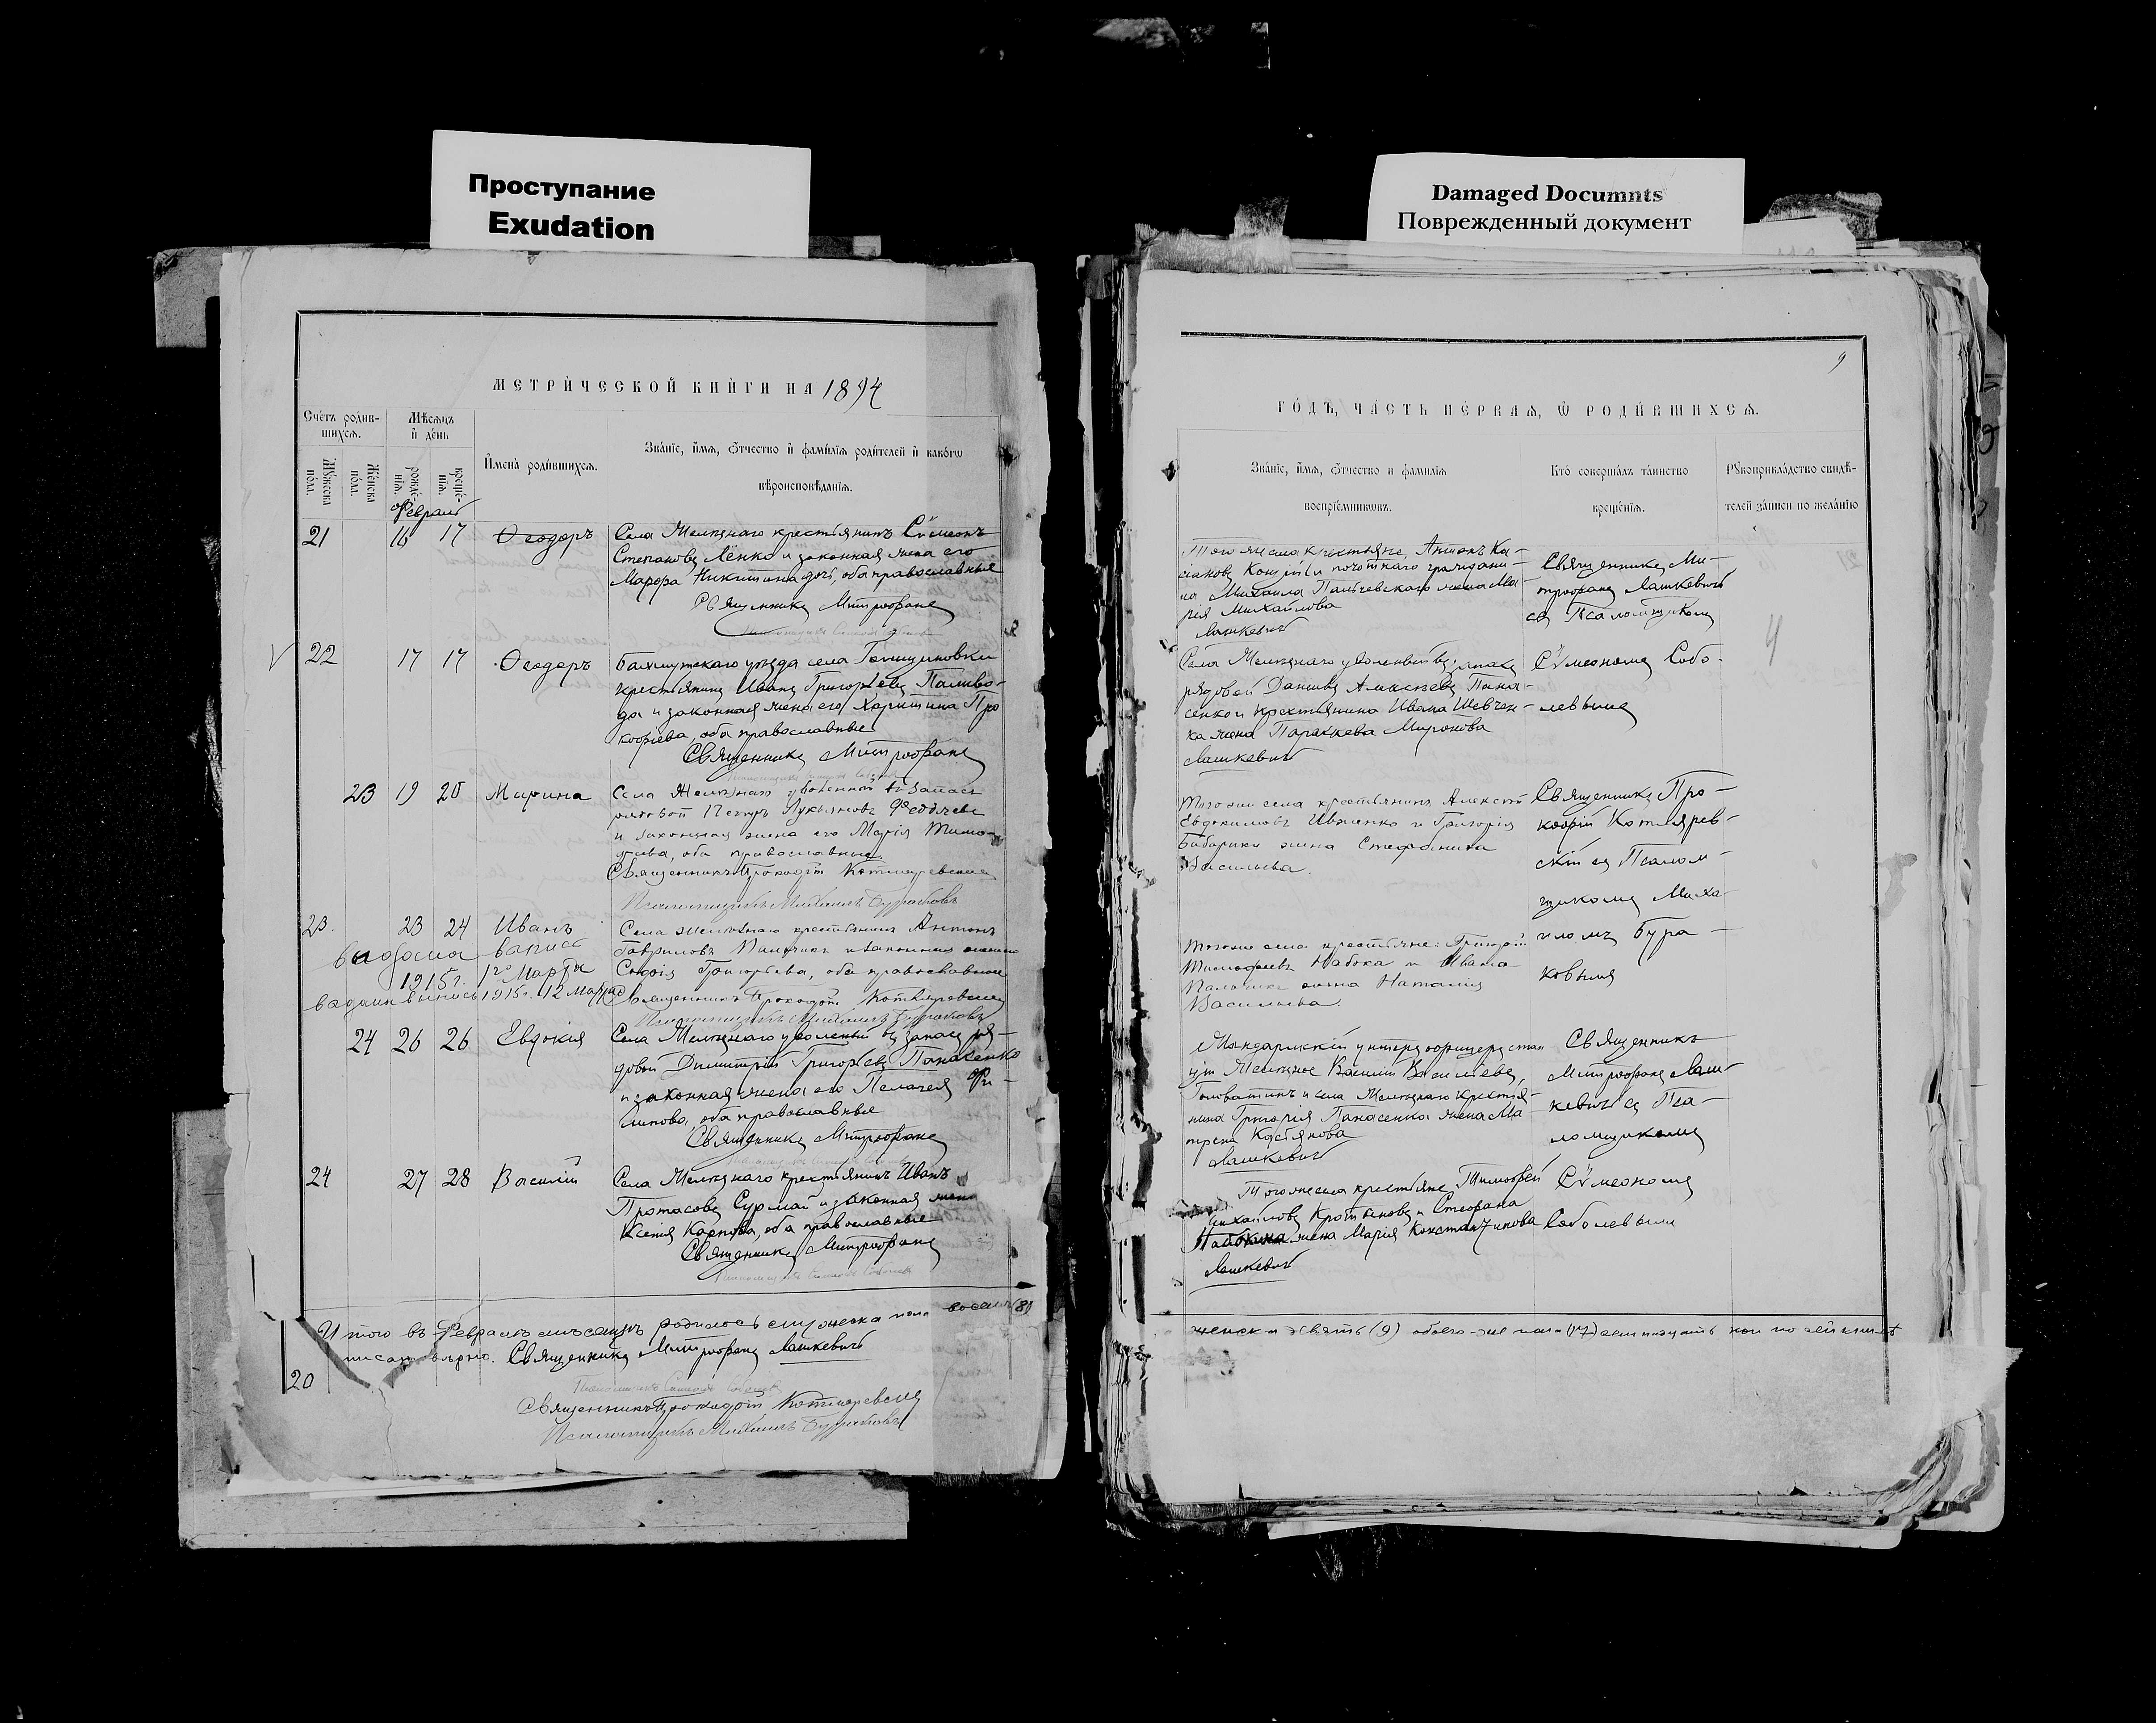 Проступание
Exudation
Damaged Documnts
Поврежденный документ
МЕТРИ́ЧЕСКОЙ КНИ́ГИ НА 1894
Сче́тъ роди́в-
шихсѧ.
Мѣ́сѧцъ
и де́нь
Мꙋ́жеска
по́ла.
Же́нска
по́ла.
рожде́-
нїѧ.
креще́-
нїѧ.
Имена̀ роди́вшихсѧ.
Зва́нїе, и́мѧ, ѻ҆́тчество и фами́лїѧ роди́телей и како́гѡ
вѣроисповѣ́данїѧ.
Февраль
21 16 17 Ѳеодоръ
Села Желѣзнаго крестьянинъ Сѵмеонъ
Степановъ Лёнко и законная жена его
Марфа Никитина, оба православные
Священникъ Митрофанъ
22 17 17 Ѳеодоръ
Бахмутскаго уѣзда села
крестьянинъ Иванъ Григорьевъ Паливо-
да и законная жена его Харитина Про
кофіева, оба православные
Священникъ Митрофанъ
23 19 20 Марина
Села Желѣзнаго уволенный въ запасъ
рядовой Петръ Лукьяновъ
и законная жена его Марія Тимо-
оба православные
Священникъ Прокофій Котляревскій
Псаломщикъ Михаилъ Бураковъ
23. 23 24 Иванъ
Села Желѣзнаго крестьянинъ Антонъ
Гавриловъ и законная жена
Софія Григорьева, оба православные
выдана выпись
1915г. 12 Марта
выдана выпись 1915г. 12 Марта
Священникъ Прокофій Котляревскій
Псаломщикъ Михаилъ Бураковъ
24 26 26 Евдокія
Села Желѣзнаго уволенный въ запасъ ря-
довой Димитрій Григорьевъ Панасенко
и законная жена его Пелагея Фи-
липова, оба православные
Священникъ Митрофанъ
24 27 28 Василій
Села Желѣзнаго крестьянинъ Иванъ
Протасовъ Сурмай и законная жена
Ксенія Карпова, оба православные
Священникъ Митрофанъ
Итого въ Февралѣ мѣсяцѣ родилось мужеска пола восемь (8)
писано вѣрно. Священникъ Митрофанъ Лашкевичъ
20
Священникъ Прокофій Котляревскій
Псаломщикъ Михаилъ Бураковъ
9
ГО́ДЪ, ЧА́СТЬ ПЕ́РВАѦ, Ѡ҆ РОДИ́ВШИХСѦ.
Зва́нїе, и́мѧ, ѻ҆́тчество и фами́лїѧ
воспрїе́мникѡвъ.
Кто̀ соверша́лъ та́инство
креще́нїѧ.
Рꙋкоприкла́дство свидѣ́-
телей за́писи по жела́нїю
Того же села крестьяне, Антонъ Ка-
и почотнаго граждани-
на Михаила жена Ма-
рія Михайлова
Лашкевичъ
Священникъ Ми-
трофанъ Лашкевичъ
съ Псаломщикомъ
4
Села Желѣзнаго уволенный въ запасъ
рядовой Даніилъ Алексѣевъ Пана-
сенко и крестьянина Ивана Шевчен-
ка жена Параскева Миронова
Лашкевичъ
Сѵмеономъ Собо-
левымъ
Того же села крестьянинъ Алексѣй
Евдокимовъ Ивженко и Григорія
Бабарики жена Стефанида
Васильева.
Священникъ Про-
кофій Котлярев-
скій съ Псалом-
щикомъ Миха-
иломъ Бура-
ковымъ
Того же села крестьяне: Григорій
Тимофеевъ Набока и Ивана
жена Наталія
Васильева.
Жандармскій унтеръ офицеръ стан
ціи Желѣзное Василій Васильевъ,
Головатинъ и села Желѣзнаго крестья-
нина Григорія Панасенка жена Ма-
трена Касьянова
Лашкевичъ
Священникъ
Митрофанъ Лаш-
кевичъ съ Пса-
ломщикомъ
Того же села крестьяне Тимофей
Михайловъ и Стефана
жена Марія Константинова
Лашкевичъ
Сѵмеономъ
Соболевымъ
женска девять (9) обоего-же пола (17) семнадцать